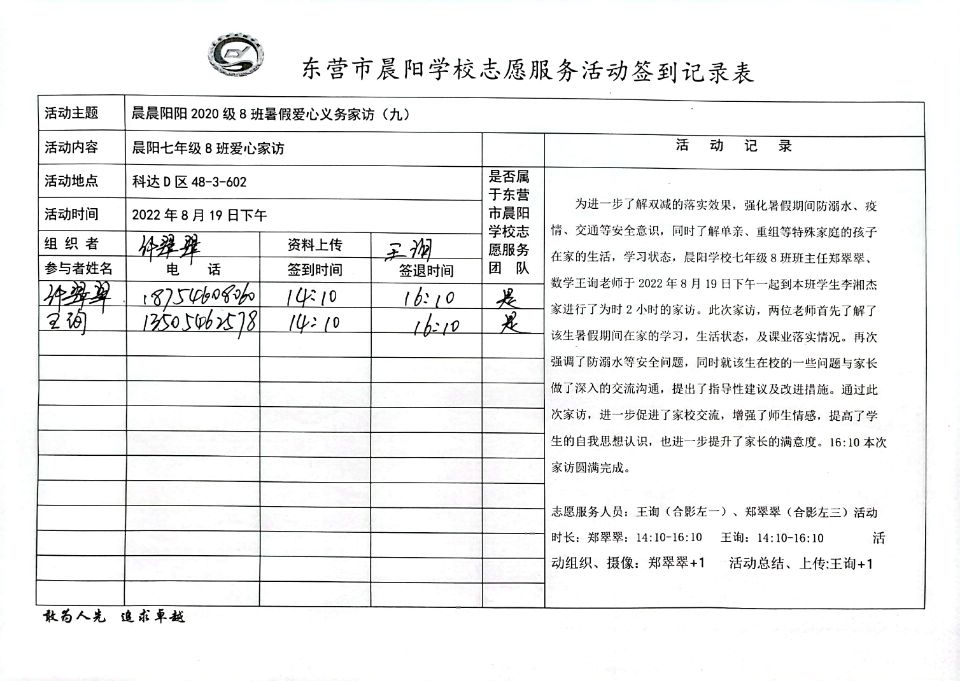 东营市晨阳学校志愿服务活动签到记录表
活动主题 晨晨阳阳 2020 级 8 班暑假爱心义务家访（九）
活动内容 晨阳七年级 8 班爱心家访
活动地点 科达 D 区 48-3-602
活动时间 2022 年 8 月 19 日下午
组 织 者 郑翠翠 资料上传 王询
参与者姓名 电 话 签到时间 签退时间
是否属
于东营
市晨阳
学校志
愿服务
团 队
郑翠翠 18754608060 14:10 16:10 是
王询 13505462578 14:10 16:10 是
活 动 记 录
为进一步了解双减的落实效果，强化暑假期间防溺水、疫
情、交通等安全意识，同时了解单亲、重组等特殊家庭的孩子
在家的生活，学习状态，晨阳学校七年级 8 班班主任郑翠翠、
数学王询老师于 2022 年 8 月 19 日下午一起到本班学生李湘杰
家进行了为时 2 小时的家访。此次家访，两位老师首先了解了
该生暑假期间在家的学习，生活状态，及课业落实情况。再次
强调了防溺水等安全问题，同时就该生在校的一些问题与家长
做了深入的交流沟通，提出了指导性建议及改进措施。通过此
次家访，进一步促进了家校交流，增强了师生情感，提高了学
生的自我思想认识，也进一步提升了家长的满意度。16:10 本次
家访圆满完成。
志愿服务人员：王询（合影左一）、郑翠翠（合影左三）活动
时长：郑翠翠：14:10-16:10 王询：14:10-16:10 活
动组织、摄像：郑翠翠+1 活动总结、上传:王询+1
敢为人先 追求卓越